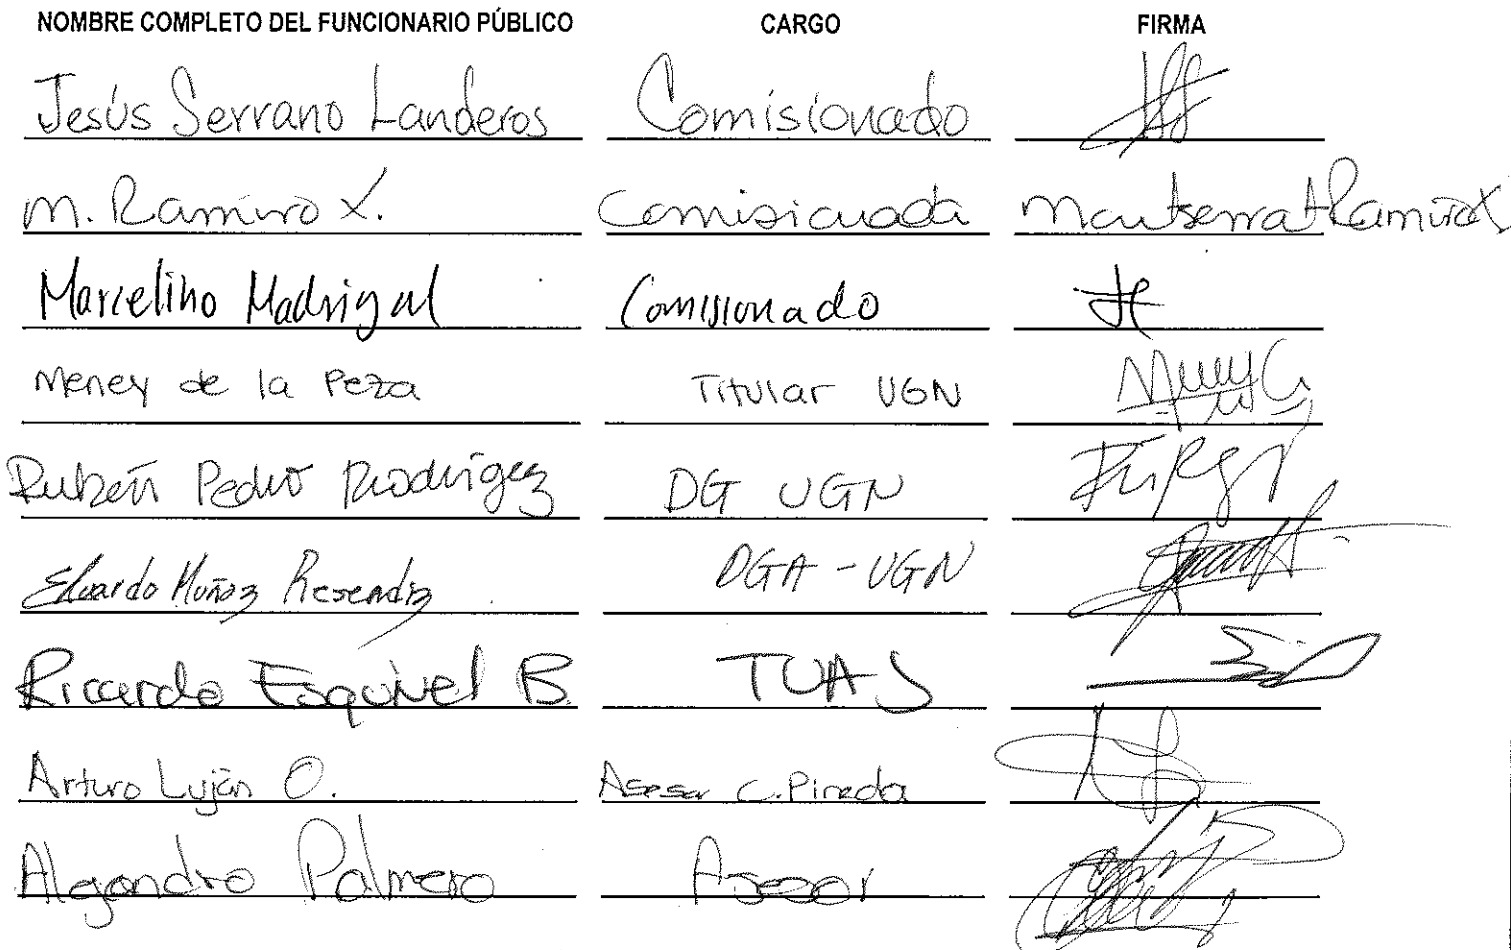 NOMBRE COMPLETO DEL FUNCIONARIO PÚBLICO CARGO FIRMA
Jesús Serrano Landeros Comisionado
M. Ramiro X. Comisionada Montserrat Ramiro X.
Marcelino Madrigal Comisionado
Meney de la Peza Titular UGN
Rubén Pedro Rodríguez DG UGN
Eduardo Muñoz Resendiz DGA - UGN
Ricardo Esquivel B. TUAJ
Arturo Luján O. Asesor C. Pineda
Alejandro Palmero Asesor